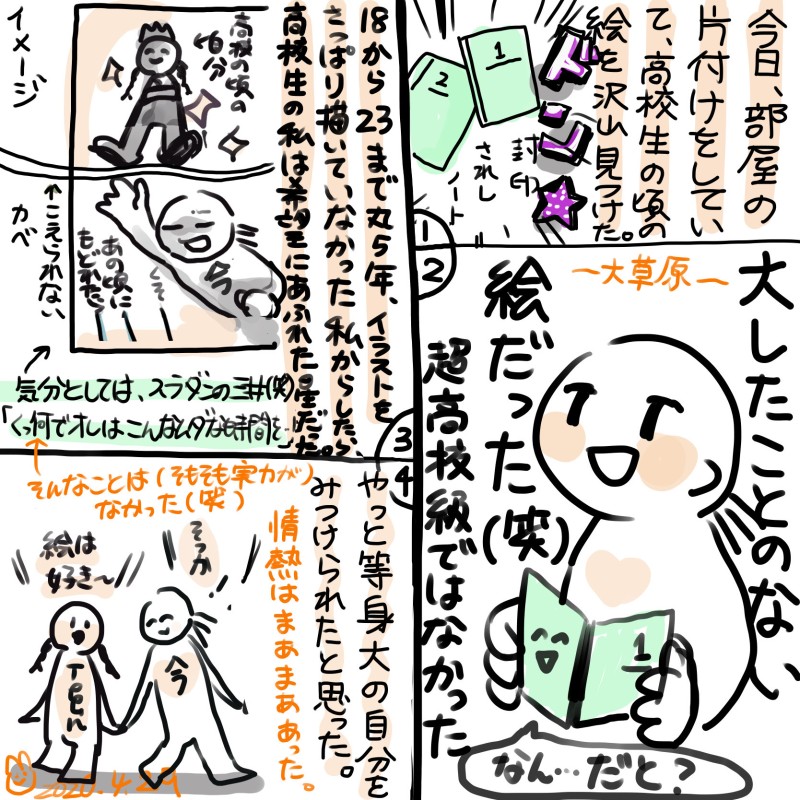 今日、部屋の
片付けをしてい
て、高校生の頃の
絵を沢山見つけた。
ドン
封印
されし
ノート
1
2
1
2
大したことのない
〜大草原〜
絵だった(笑)
超高校級ではなかった
1
なん…だと?
3
18から23まで丸5年、イラストを
さっぱり描いていなかった私からしたら、
高校生の私は希望にあふれた星だった。
高校の頃の
自分
イメージ
今
くそ
あの頃に
もどれたら
←こえられない
カベ
気分としては、スラダンの三井(笑)
「くっ何でオレはこんなムダな時間を」
そんなことは(そもそも実力が)
なかった(笑)
4
やっと等身大の自分を
みつけられたと思った。
情熱はまあまああった。
そっか
!
絵は
好き〜
Teen
今
2020.4.29